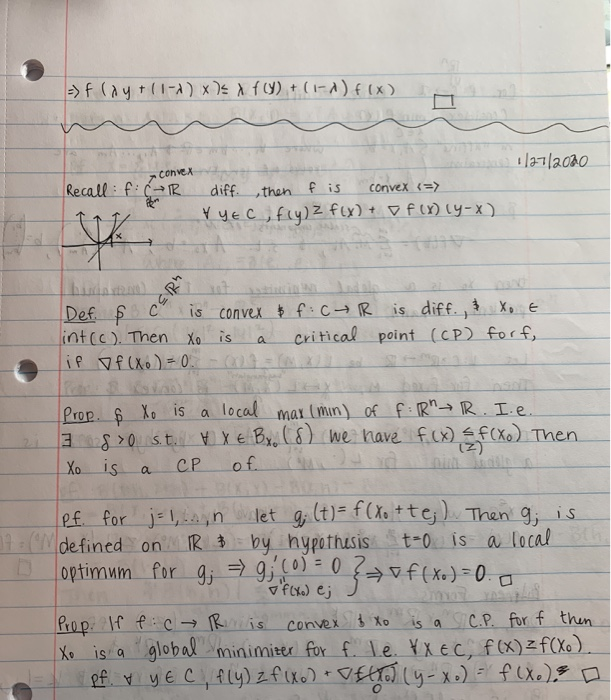 ⇒ f(λy + (1-λ)x) ≤ λ f(y) + (1-λ) f(x) □
1/27/2020
Recall: f: C → ℝ diff., then f is convex <=>
convex
∀ y ∈ C, f(y) ≥ f(x) + ∇f(x)(y-x)
x
Def. $ C ⊆ ℝⁿ is convex & f: C → ℝ is diff., & x₀ ∈
int(C). Then x₀ is a critical point (CP) for f,
if ∇f(x₀) = 0.
Prop. $ x₀ is a local max (min) of f: ℝⁿ → ℝ. I.e.
∃ δ > 0 s.t. ∀ x ∈ B_x₀(δ) we have f(x) ≤ f(x₀) Then
(≥)
x₀ is a CP of f.
Pf. for j=1,...,n let gⱼ(t) = f(x₀ + teⱼ). Then gⱼ is
defined on ℝ & by hypothesis t=0 is a local
optimum for gⱼ ⇒ gⱼ'(0) = 0 } ⇒ ∇f(x₀) = 0. □
" ∇f(x₀) eⱼ
Prop. If f: C → ℝ is convex & x₀ is a C.P. for f then
x₀ is a global minimizer for f. I.e. ∀x ∈ C, f(x) ≥ f(x₀).
pf. ∀ y ∈ C, f(y) ≥ f(x₀) + ∇f(x₀)(y-x₀) = f(x₀). □
0